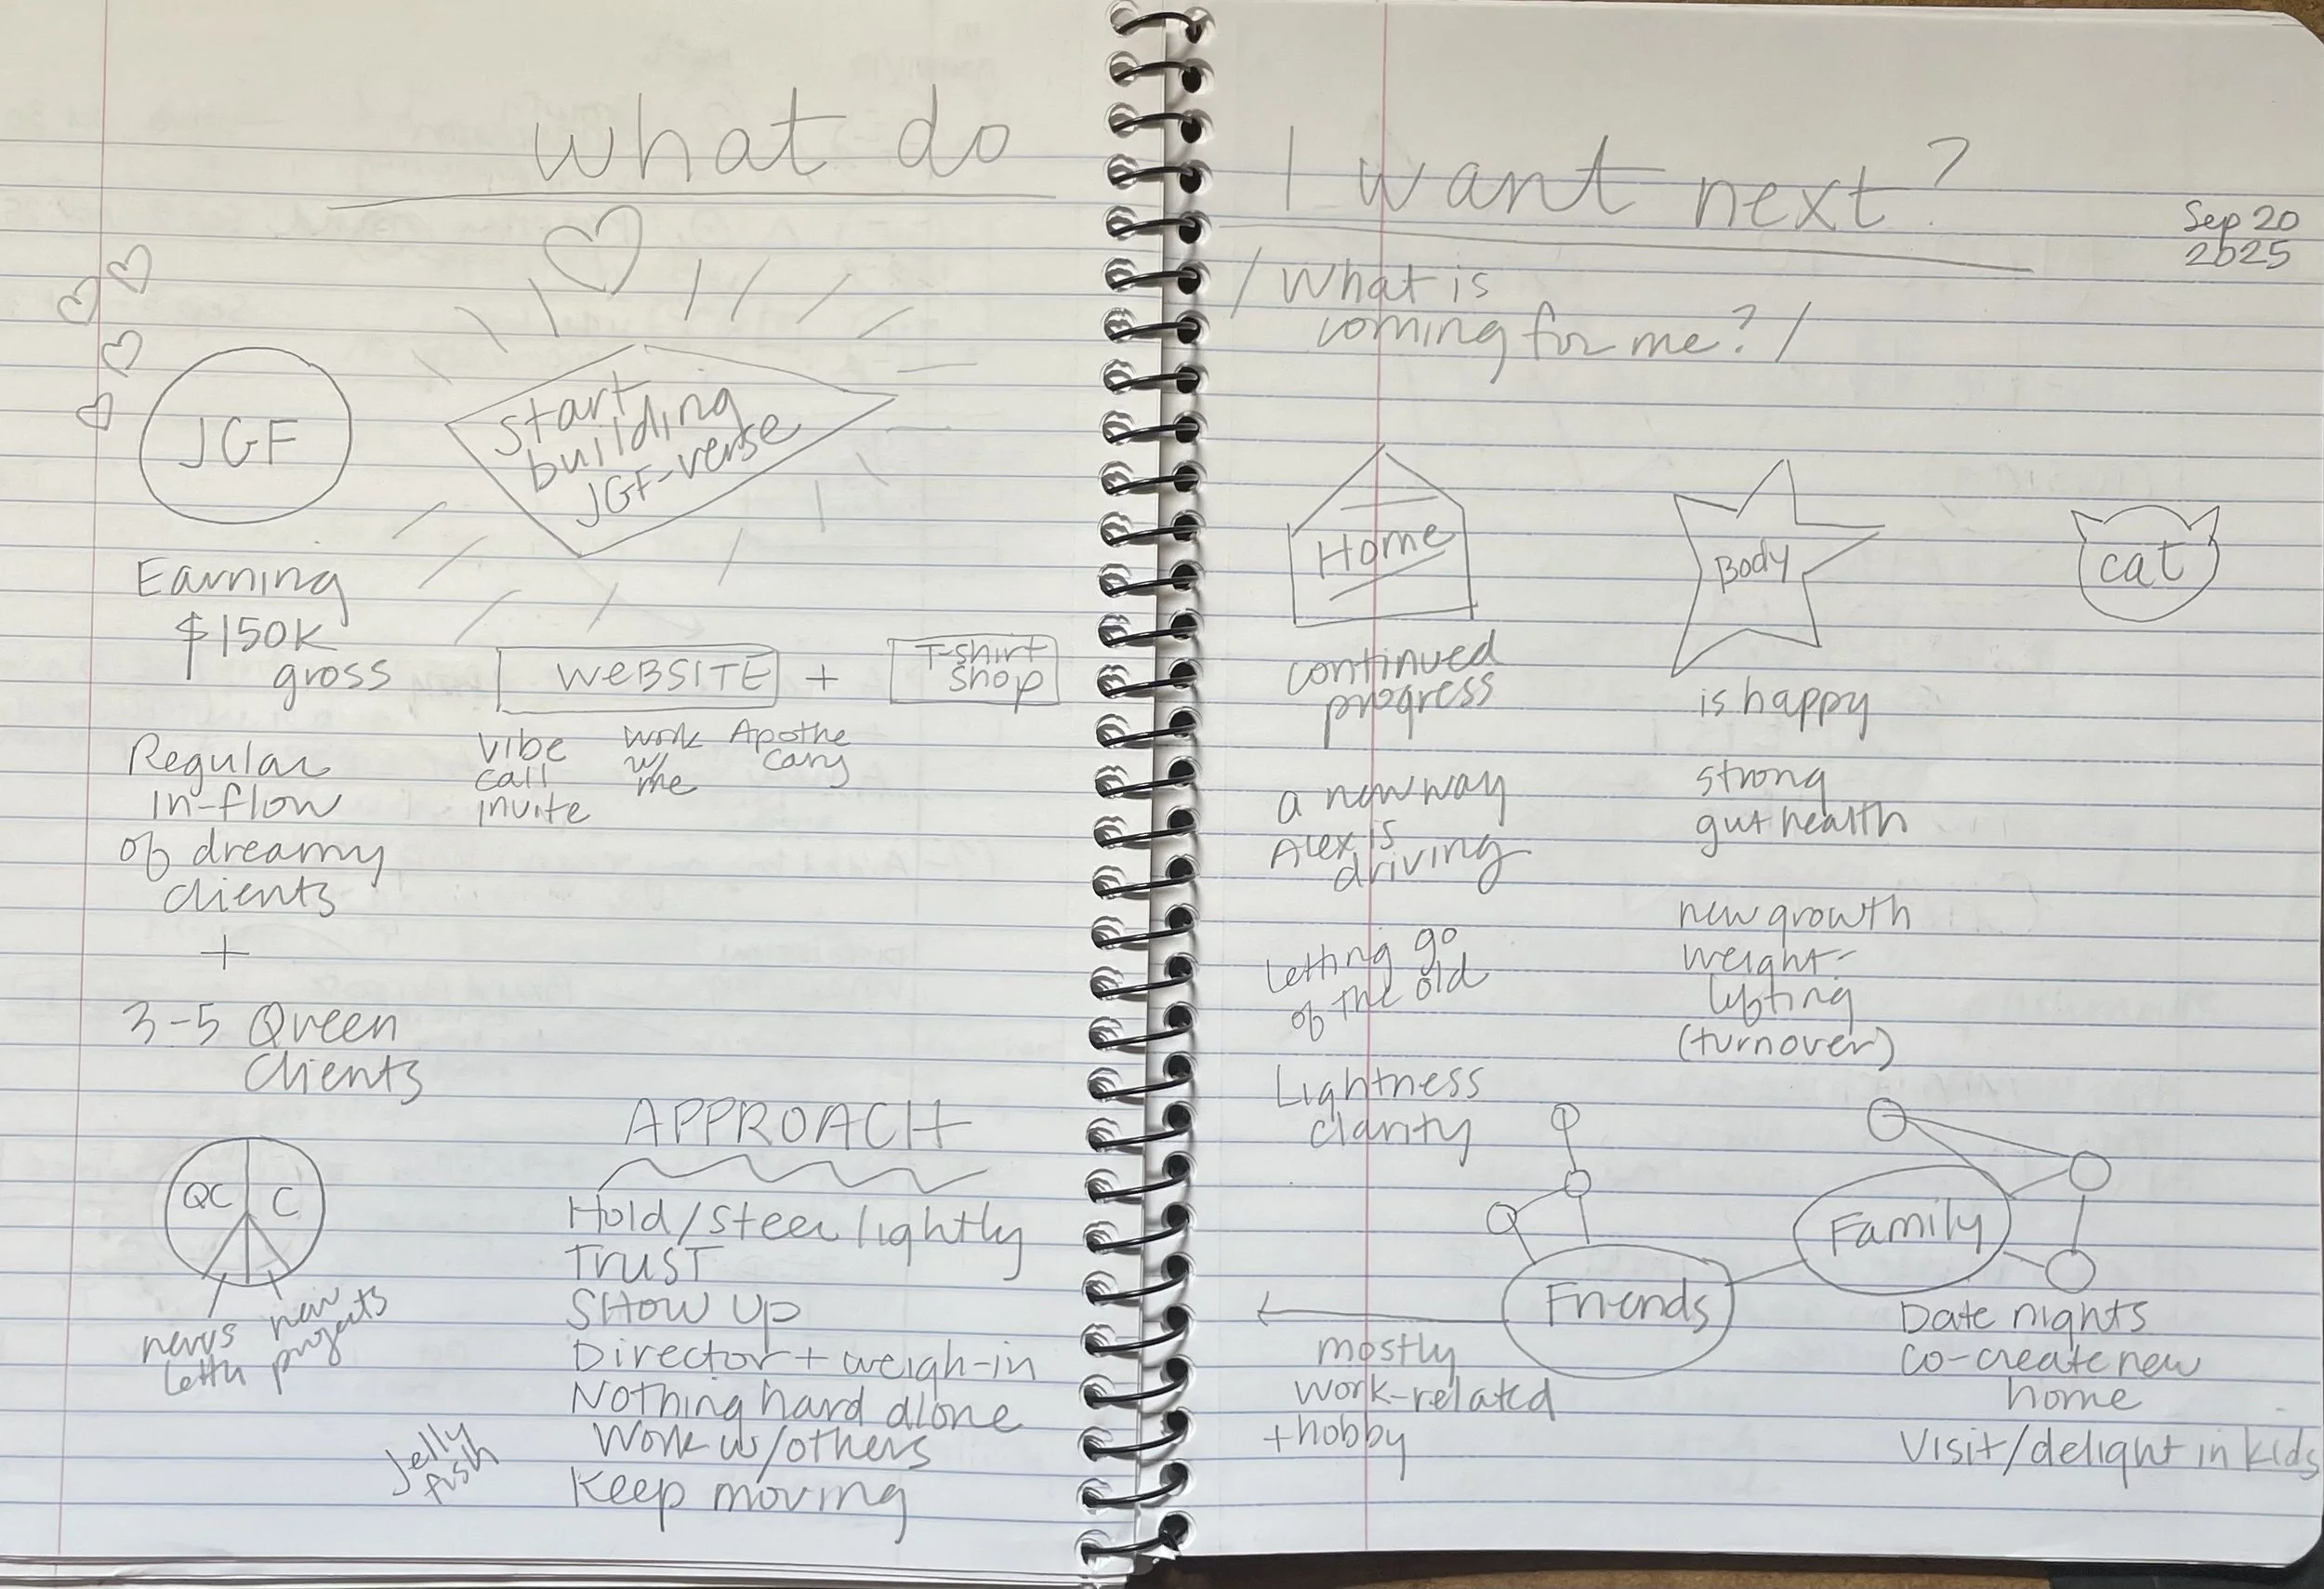 What do
I want next?
Sep 20
2025
/ What is
coming for me? /
JGF
Earning
$150K
gross
Regular
in-flow
of dreamy
clients
+
3-5 Queen
Clients
QC
C
news
letter
new
projects
Start
building
JGF-verse
WEBSITE
+
T-shirt
shop
Vibe
call
invite
work
w/
me
Apothe
cary
APPROACH
Hold/steer lightly
TRUST
SHOW UP
Director + weigh-in
Nothing hard alone
Work w/others
Keep moving
Jelly
fish
Home
continued
progress
a new way
Alex is
driving
Letting go
of the old
Lightness
clarity
Body
is happy
strong
gut health
new growth
weight-
lifting
(turnover)
cat
Friends
mostly
work-related
+ hobby
Family
Date nights
Co-create new
home
Visit/delight in kids